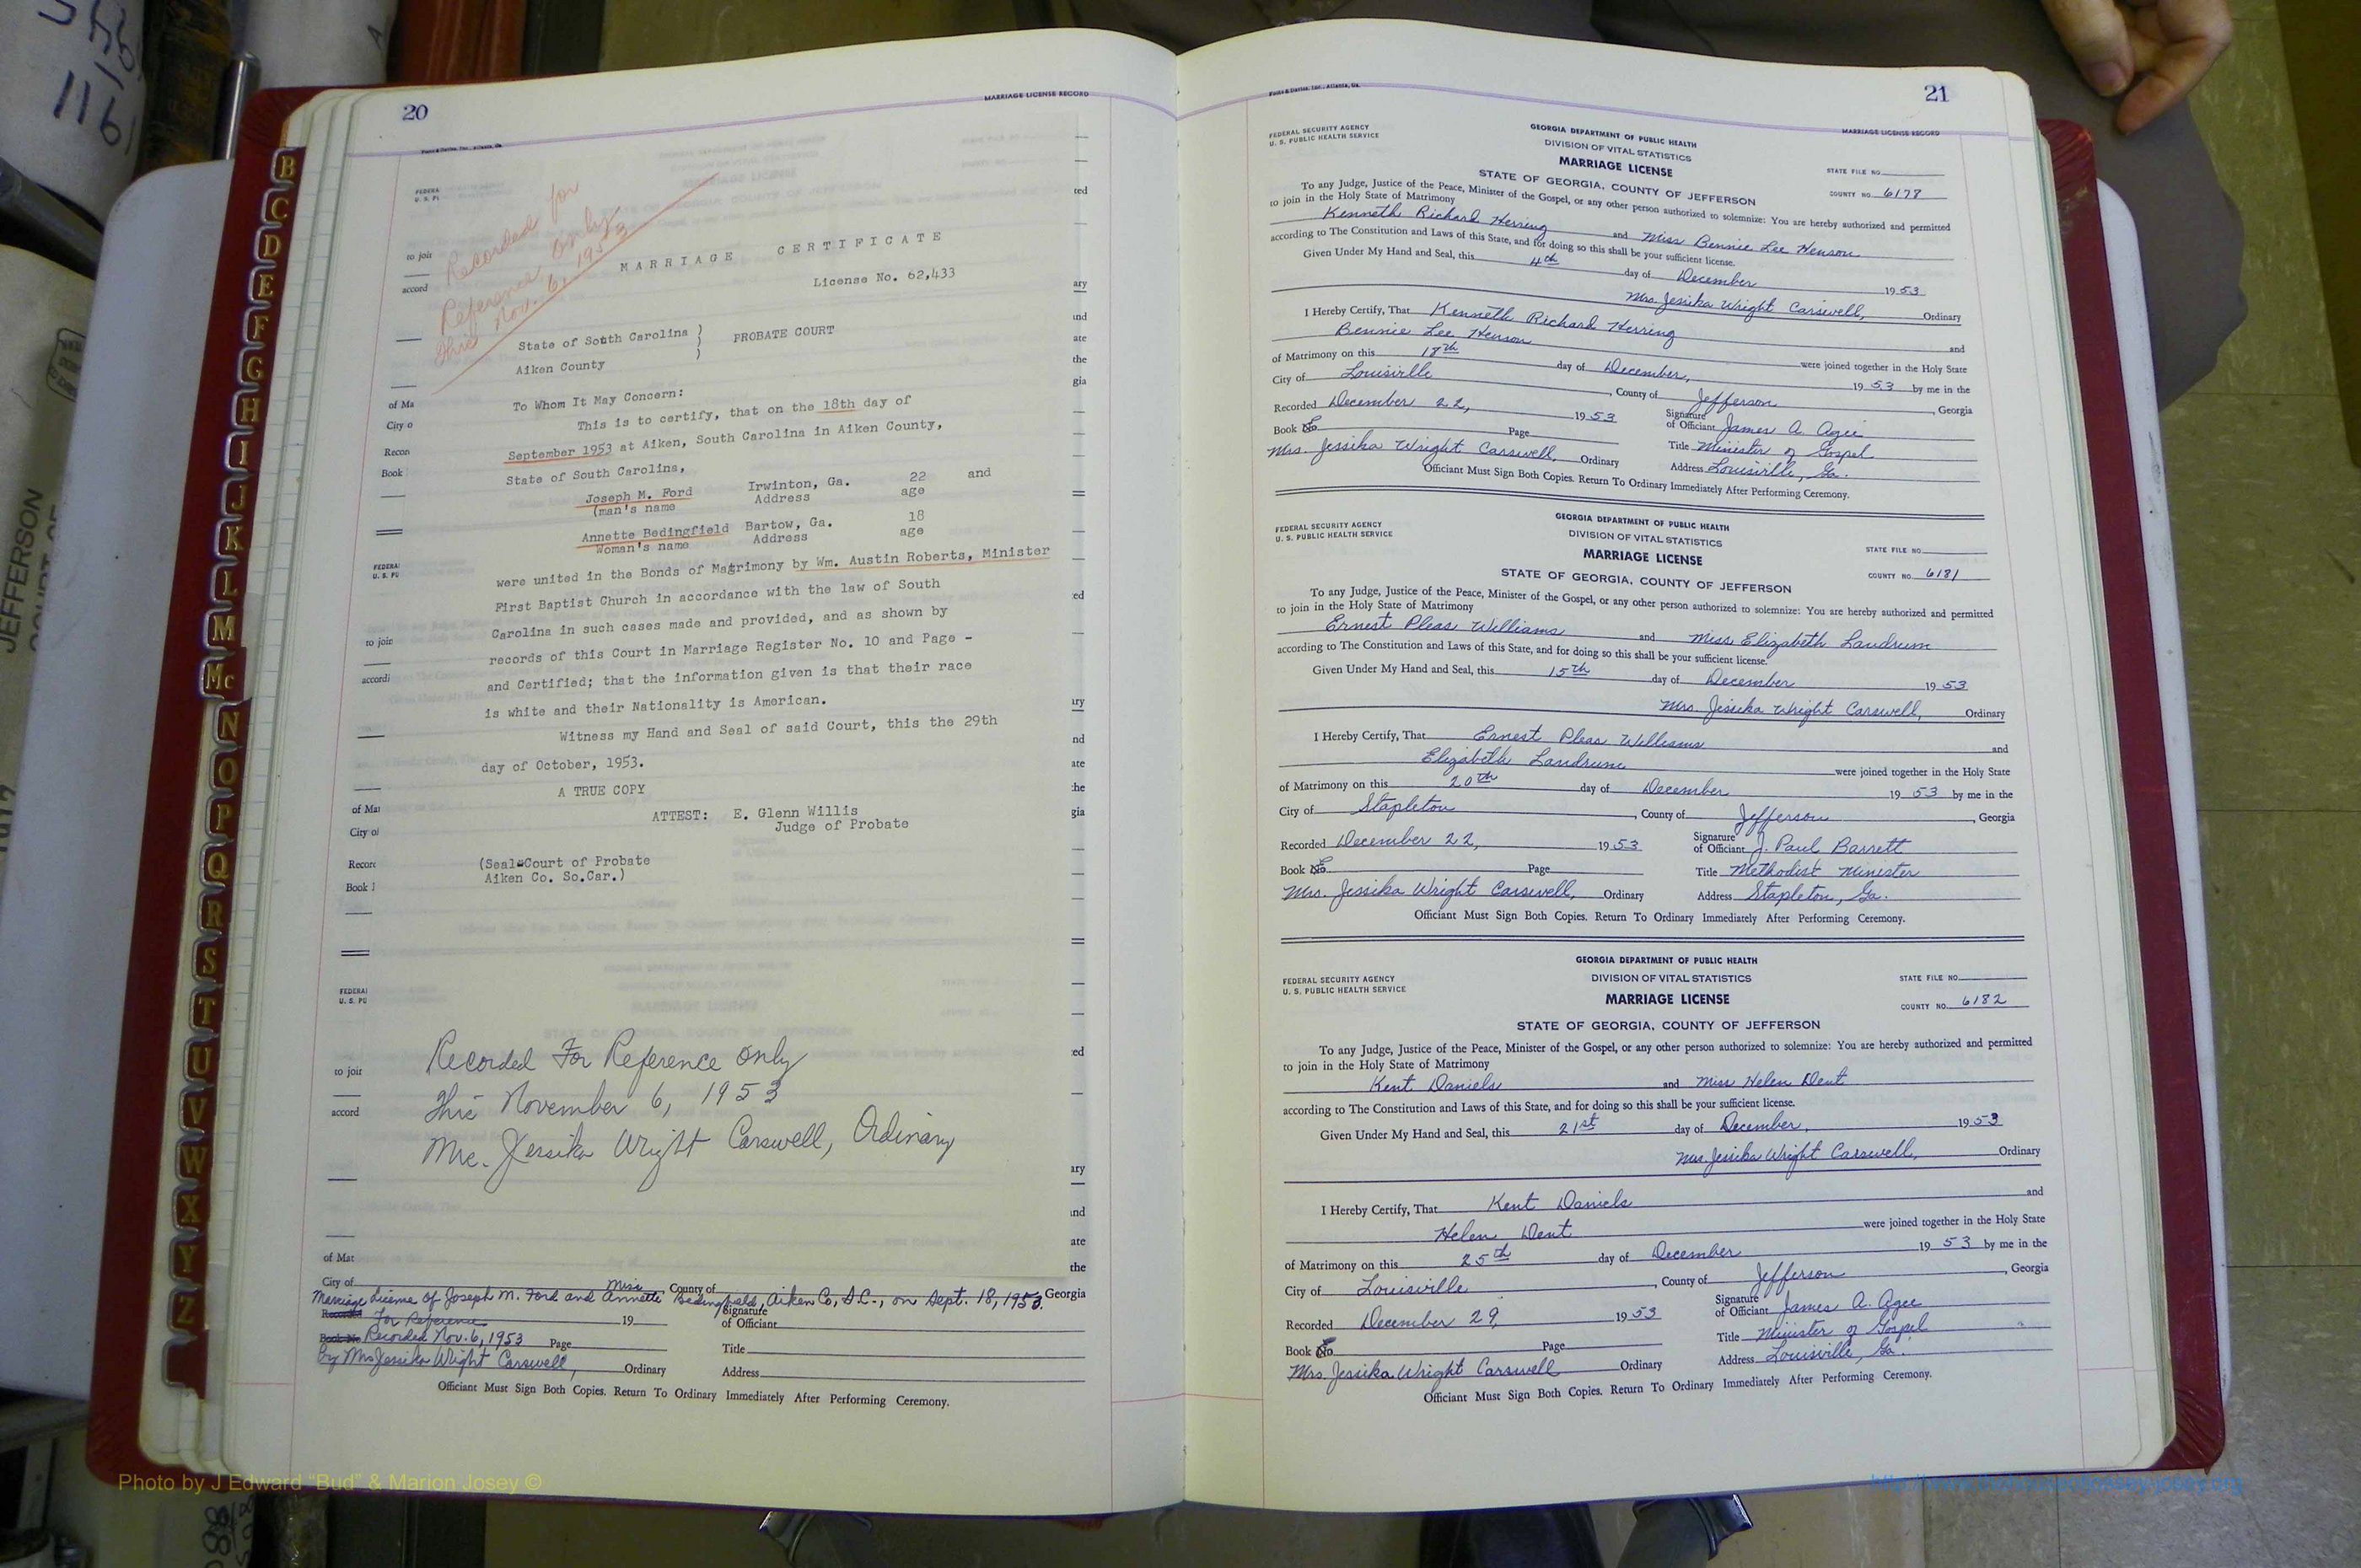 20
MARRIAGE LICENSE RECORD
Recorded for
Reference only
this Nov. 6, 1953
MARRIAGE CERTIFICATE
License No. 62,433
State of South Carolina )
) PROBATE COURT
Aiken County )
To Whom It May Concern:
This is to certify, that on the 18th day of
September 1953 at Aiken, South Carolina in Aiken County,
State of South Carolina,
Joseph M. Ford Irwinton, Ga. 22 and
(man's name Address age
Annette Bedingfield Bartow, Ga. 18
Woman's name Address age
were united in the Bonds of Matrimony by Wm. Austin Roberts, Minister
First Baptist Church in accordance with the law of South
Carolina in such cases made and provided, and as shown by
records of this Court in Marriage Register No. 10 and Page -
and Certified; that the information given is that their race
is white and their Nationality is American.
Witness my Hand and Seal of said Court, this the 29th
day of October, 1953.
A TRUE COPY
ATTEST: E. Glenn Willis
Judge of Probate
(Seal-Court of Probate
Aiken Co. So.Car.)
Recorded For Reference only
This November 6, 1953
Mrs. Jessika Wright Carswell, Ordinary
City of County of Georgia
Marriage License of Joseph M. Ford and Miss Annette Bedingfield, Aiken Co, S.C., on Sept. 18, 1953.
Recorded For Reference 19 Signature of Officiant
Book No Recorded Nov. 6, 1953 Page Title
by Mrs Jessika Wright Carswell, Ordinary Address
Officiant Must Sign Both Copies. Return To Ordinary Immediately After Performing Ceremony.
21
MARRIAGE LICENSE RECORD
FEDERAL SECURITY AGENCY
U. S. PUBLIC HEALTH SERVICE
GEORGIA DEPARTMENT OF PUBLIC HEALTH
DIVISION OF VITAL STATISTICS
MARRIAGE LICENSE
STATE OF GEORGIA, COUNTY OF JEFFERSON
STATE FILE NO.
COUNTY NO. 6178
To any Judge, Justice of the Peace, Minister of the Gospel, or any other person authorized to solemnize: You are hereby authorized and permitted
to join in the Holy State of Matrimony
Kenneth Richard Herring and Miss Bennie Lee Henson
according to The Constitution and Laws of this State, and for doing so this shall be your sufficient license.
Given Under My Hand and Seal, this 4th day of December 1953
Mrs. Jesika Wright Carswell, Ordinary
I Hereby Certify, That Kenneth Richard Herring and
Bennie Lee Henson were joined together in the Holy State
of Matrimony on this 18th day of December, 1953 by me in the
City of Louisville, County of Jefferson, Georgia
Recorded December 22, 1953 Signature of Officiant James A. Agee
Book No Page Title Minister of Gospel
Mrs. Jessika Wright Carswell, Ordinary Address Louisville, Ga.
Officiant Must Sign Both Copies. Return To Ordinary Immediately After Performing Ceremony.
FEDERAL SECURITY AGENCY
U. S. PUBLIC HEALTH SERVICE
GEORGIA DEPARTMENT OF PUBLIC HEALTH
DIVISION OF VITAL STATISTICS
MARRIAGE LICENSE
STATE OF GEORGIA, COUNTY OF JEFFERSON
STATE FILE NO.
COUNTY NO. 6181
To any Judge, Justice of the Peace, Minister of the Gospel, or any other person authorized to solemnize: You are hereby authorized and permitted
to join in the Holy State of Matrimony
Ernest Pleas Williams and Miss Elizabeth Landrum
according to The Constitution and Laws of this State, and for doing so this shall be your sufficient license.
Given Under My Hand and Seal, this 15th day of December 1953
Mrs. Jesika Wright Carswell, Ordinary
I Hereby Certify, That Ernest Pleas Williams and
Elizabeth Landrum were joined together in the Holy State
of Matrimony on this 20th day of December 1953 by me in the
City of Stapleton, County of Jefferson, Georgia
Recorded December 22, 1953 Signature of Officiant J. Paul Barrett
Book No Page Title Methodist Minister
Mrs. Jessika Wright Carswell, Ordinary Address Stapleton, Ga.
Officiant Must Sign Both Copies. Return To Ordinary Immediately After Performing Ceremony.
FEDERAL SECURITY AGENCY
U. S. PUBLIC HEALTH SERVICE
GEORGIA DEPARTMENT OF PUBLIC HEALTH
DIVISION OF VITAL STATISTICS
MARRIAGE LICENSE
STATE OF GEORGIA, COUNTY OF JEFFERSON
STATE FILE NO.
COUNTY NO. 6182
To any Judge, Justice of the Peace, Minister of the Gospel, or any other person authorized to solemnize: You are hereby authorized and permitted
to join in the Holy State of Matrimony
Kent Daniels and Miss Helen Dent
according to The Constitution and Laws of this State, and for doing so this shall be your sufficient license.
Given Under My Hand and Seal, this 21st day of December, 1953
Mrs. Jesika Wright Carswell, Ordinary
I Hereby Certify, That Kent Daniels and
Helen Dent were joined together in the Holy State
of Matrimony on this 25th day of December 1953 by me in the
City of Louisville, County of Jefferson, Georgia
Recorded December 29, 1953 Signature of Officiant James A. Agee
Book No Page Title Minister of Gospel
Mrs. Jersika Wright Carswell Ordinary Address Louisville, Ga.
Officiant Must Sign Both Copies. Return To Ordinary Immediately After Performing Ceremony.
B
C
D
E
F
G
H
I
J
K
L
M
Mc
N
O
P
Q
R
S
T
U
V
W
X
Y
Z
JEFFERSON
Photo by J Edward "Bud" & Marion Josey ©